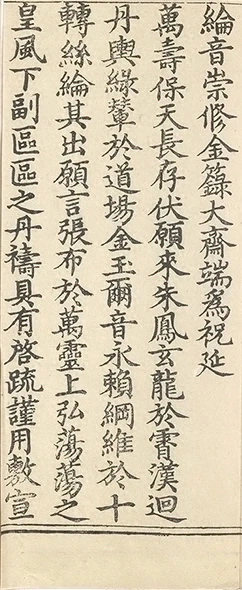 綸音崇修金籙大齋端爲祝延
萬壽保天長存伏願來朱鳳玄龍於霄漢迴
丹輿綠輦於道場金玉爾音永賴綱維於十
轉絲綸其出願言張布於萬靈上弘蕩蕩之
皇風下副區區之丹禱具有啓疏謹用敷宣